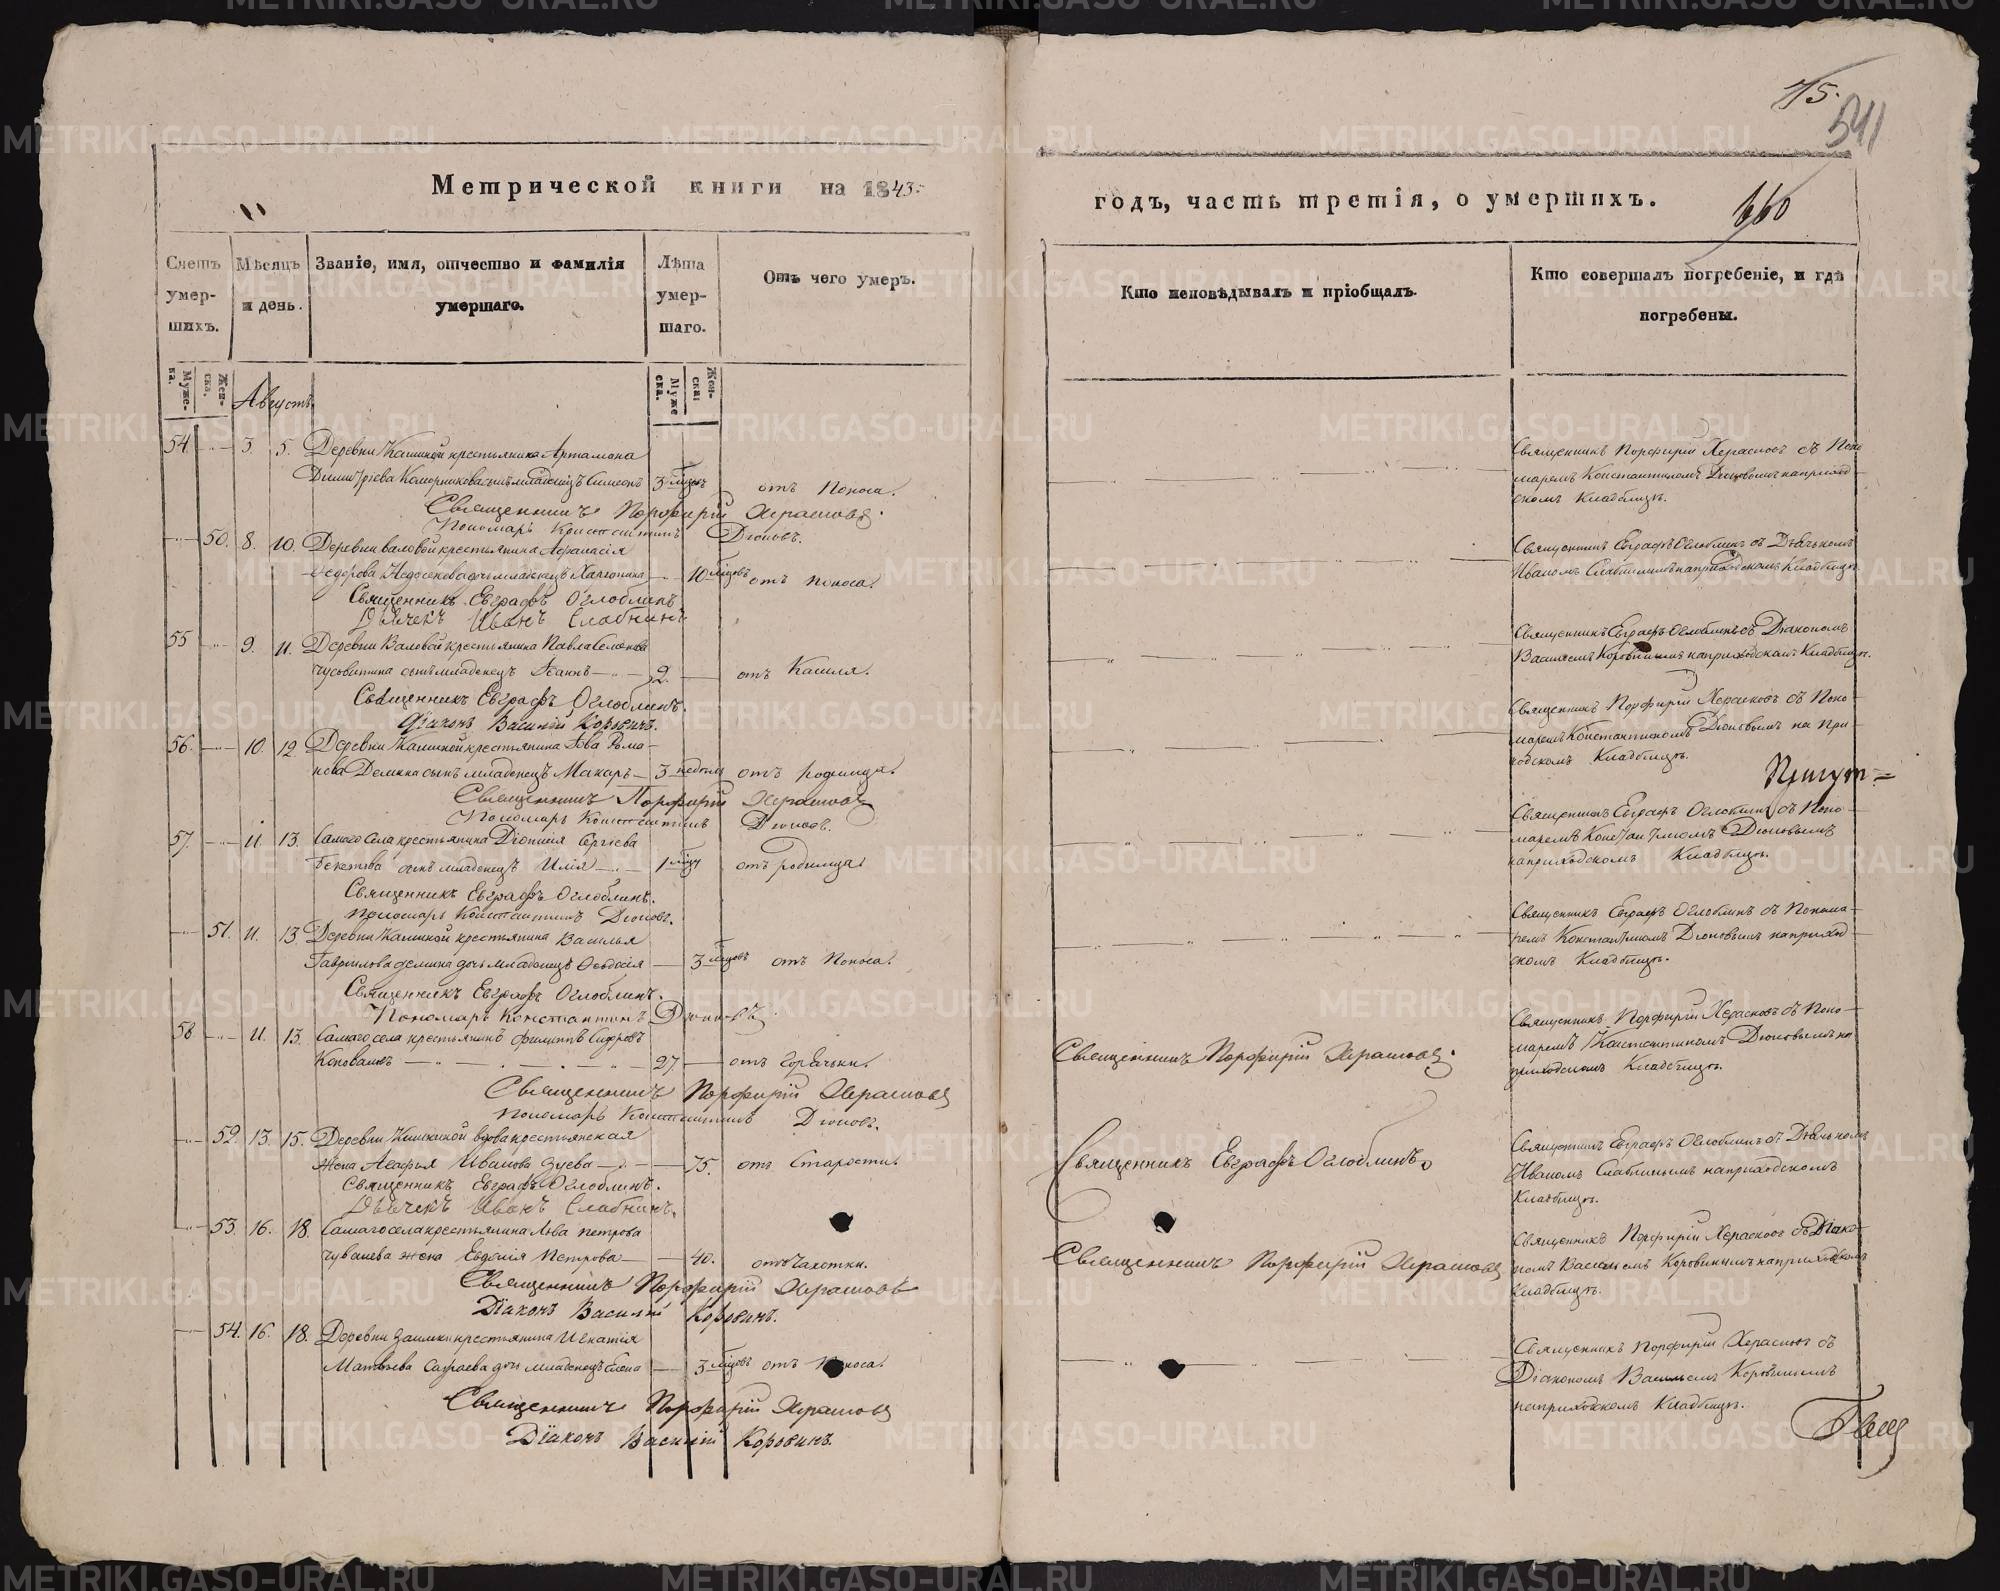 Метрической книги на 1843.
Счетъ умер-шихъ.
Мѣсяцъ и день.
Званіе, имя, отчество и фамилія умершаго.
Лѣта умер-шаго.
Отъ чего умеръ.
Муже-ска.
Жен-ска.
Августъ.
Муже ска.
Жен-ска:
54. 3. 5. Деревни крестьянина Артамона
сынъ младенецъ Симеонъ 3 отъ поноса.
Священникъ Порфирій Херасковъ.
Пономарь Константинъ
50. 8. 10. Деревни Валовой крестьянина Афанасія
Федорова дочь младенецъ 10 отъ поноса.
Священникъ Евграфъ Оглоблинъ
Дьячекъ Иванъ Слабнинъ
55 9. 11. Деревни Валовой крестьянина Павла
Чусовитина сынъ младенецъ Іоаннъ 2. отъ Кашля.
Священникъ Евграфъ Оглоблинъ.
Діаконъ Василій Коровинъ.
56. 10. 12. Деревни крестьянина Рома-
нова сынъ младенецъ Макаръ 3 недѣль отъ родимца.
Священникъ Порфирій Херасковъ
Пономарь Константинъ
57. 11. 13. Самаго села крестьянина Діонисія Сергіева
сынъ младенецъ Илія 1 отъ родимца.
Священникъ Евграфъ Оглоблинъ.
Пономарь Константинъ
51. 11. 13 Деревни крестьянина Василья
Гаврилова дочь младенецъ Ѳеодосія 3 отъ поноса.
Священникъ Евграфъ Оглоблинъ.
Пономарь Константинъ
58 11. 13. Самаго села крестьянинъ Филиппъ
Коноваловъ 27. отъ горячки.
Священникъ Порфирій Херасковъ
Пономарь Константинъ
52. 13. 15. Деревни вдова крестьянская
жена Агафья Иванова Зуева 75. отъ старости.
Священникъ Евграфъ Оглоблинъ.
Дьячекъ Иванъ Слабнинъ.
53. 16. 18. Самаго села крестьянина Льва Петрова
Чувашева жена Евдокія Петрова 40. отъ чахотки.
Священникъ Порфирій Херасковъ
Діаконъ Василій Коровинъ.
54. 16. 18. Деревни Заимки крестьянина Игнатія
Матвѣева дочь младенецъ Елена 3 отъ поноса.
Священникъ Порфирій Херасковъ
Діаконъ Василій Коровинъ.
115.
541
660
годъ, часть третія, о умершихъ.
Кто исповѣдывалъ и пріобщалъ.
Кто совершалъ погребеніе, и гдѣ погребены.
Священникъ Порфирій Херасковъ съ Поно
маремъ Константиномъ на приход-
скомъ Кладбищѣ.
Священникъ Евграфъ Оглоблинъ съ Дьячькомъ
Иваномъ Слабнинымъ на приходскомъ Кладбищѣ.
Священникъ Евграфъ Оглоблинъ съ Діакономъ
Васильемъ Коровинымъ на приходскомъ Кладбищѣ.
Священникъ Порфирій Херасковъ съ Поно-
маремъ Константиномъ на при-
ходскомъ Кладбищѣ.
Священникъ Евграфъ Оглоблинъ съ Поно-
маремъ Константиномъ
на приходскомъ Кладбищѣ.
Священникъ Евграфъ Оглоблинъ съ Понома-
ремъ Константиномъ на приход-
скомъ Кладбищѣ.
Священникъ Порфирій Херасковъ.
Священникъ Порфирій Херасковъ съ Поно-
маремъ Константиномъ на
приходскомъ Кладбищѣ.
Священникъ Евграфъ Оглоблинъ
Священникъ Евграфъ Оглоблинъ съ Дьячькомъ
Иваномъ Слабнинымъ на приходскомъ
Кладбищѣ.
Священникъ Порфирій Херасковъ
Священникъ Порфирій Херасковъ съ Діако-
номъ Васильемъ Коровинымъ на приходскомъ
Кладбищѣ.
Священникъ Порфирій Херасковъ съ
Діакономъ Васильемъ Коровинымъ
на приходскомъ Кладбищѣ.
METRIKI.GASO-URAL.RU